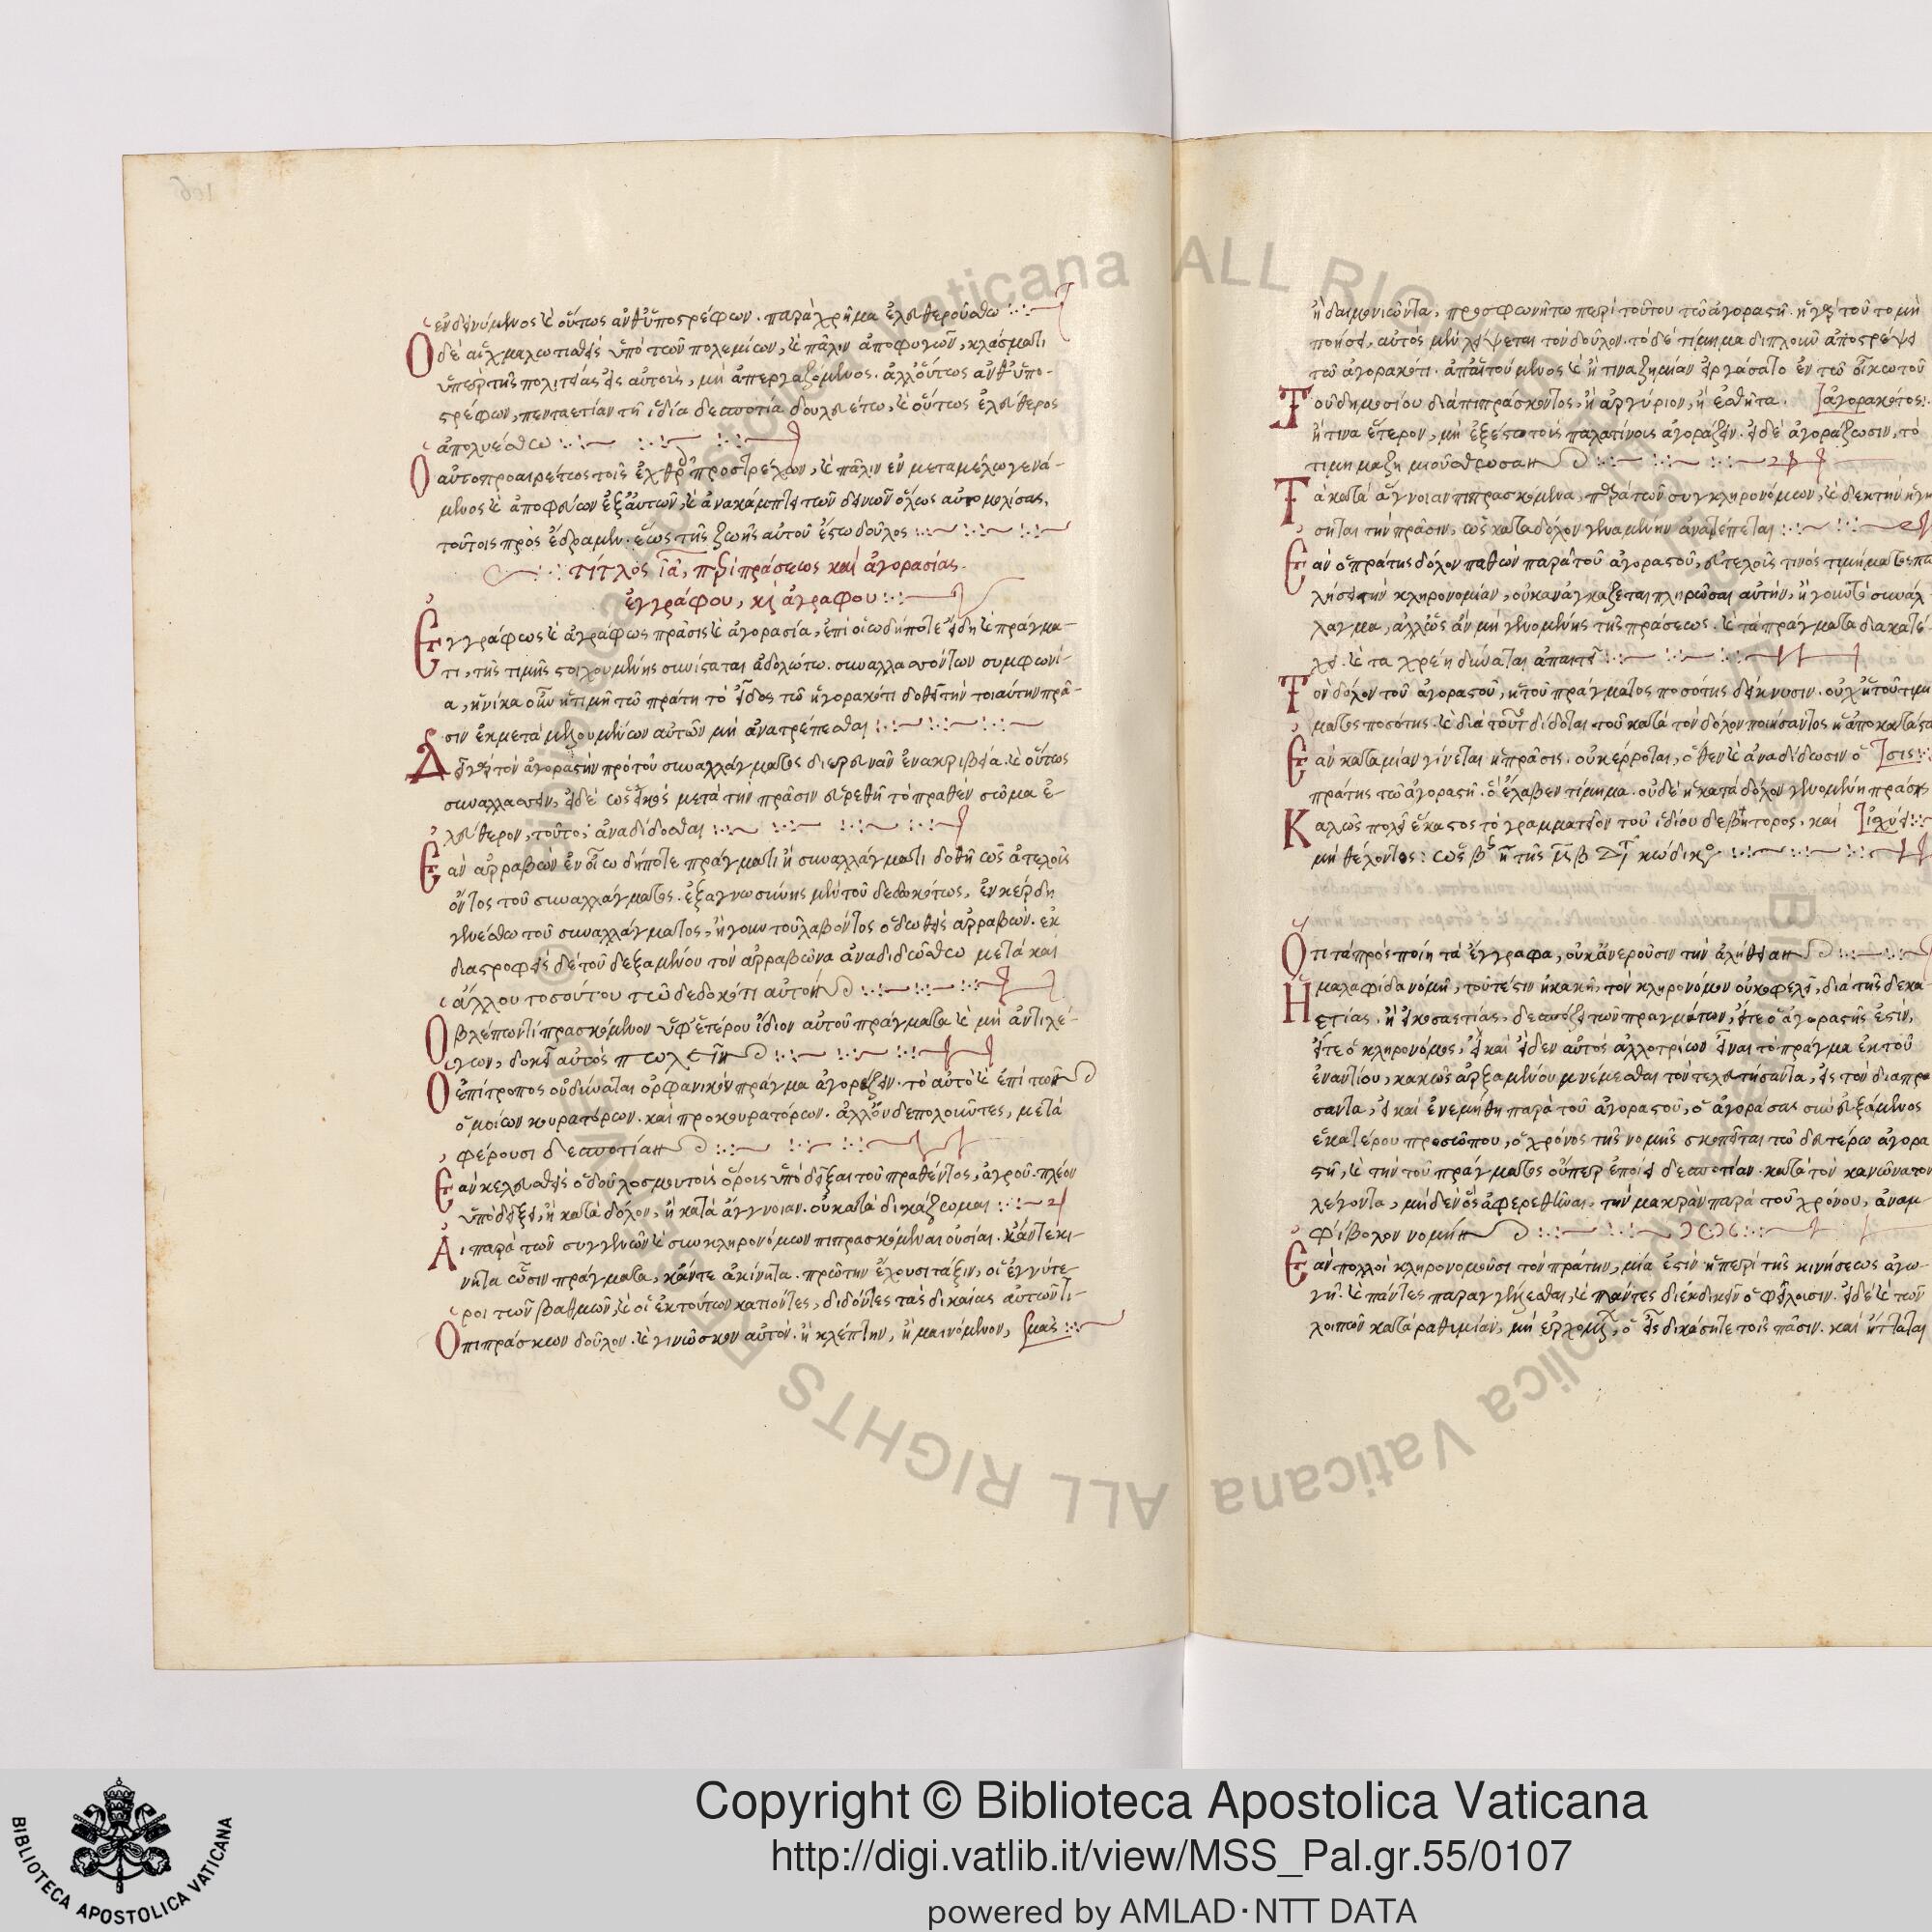 ἐνδεικνύμενος καὶ οὕτως ἀνθϋποστρέφων. παραχρῆμα ἐλευθερούσθω
Ὁ δὲ αἰχμαλωτισθεὶς ὑπὸ τῶν πολεμίων, καὶ πάλιν ἀποφυγὼν, κλάσματι
ὑπὲρ τῆς πολιτείας εἰς αὐτοὺς, μὴ ἀπεργαζόμενος. ἀλλ' οὕτως ἀνθϋπο-
στρέφων, πενταετίαν τῆ ἰδία δεσποτία δουλευέτω, καὶ οὕτως ἐλεύθερος
ἀπολυέσθω
Ὁ αὐτοπροαιρέτως τοῖς ἐχθροῖς προστρέχων, καὶ πάλιν ἐν μεταμέλω γενό-
μενος καὶ
τούτοις προσέδραμεν. ἕως τῆς ζωῆς αὐτοῦ ἔστω δοῦλος
τίτλος ια, περὶ πράσεως καὶ ἀγορασίας.
ἐγγράφου, καὶ ἀγράφου
Ἐγγράφως καὶ ἀγράφως πρᾶσις καὶ ἀγορασία, ἐπὶ οἱωδήποτε εἴδη καὶ πράγμα-
τι, τῆς τιμῆς στοιχουμένης συνίσταται ἀδολώτω. συναλλασσόντων συμφωνί-
α, ἡνίκα οὖν ἡ τιμὴ τῶ πράτη τὸ εἶδος τῶ ἠγορακότι δοθεῖ τὴν τοιαύτην πρᾶ-
σιν ἐκ μεταμελουμένων αὐτῶν μὴ ἀνατρέπεσθαι
Δεῖ γὰρ τὸν ἀγοραστὴν πρὸ τοῦ συναλλάγματος διερευνᾶν ἐν ἀκριβεία. καὶ οὕτως
συναλλάσσειν, εἰ δὲ ὡς εἰκὸς μετὰ τὴν πρᾶσιν εὑρεθῆ τὸ πραθὲν σῶμα ἐ-
λεύθερον, τοῦτο ἀναδίδοσθαι
Ἐὰν ἀρραβὼν ἐν οἵω δήποτε πράγματι ἢ συναλλάγματι δοθῆ ὡς ἀτελοῦς
ὄντος τοῦ συναλλάγματος. ἐξ ἀγνωμοσύνης μὲν τοῦ δεδωκότως, ἐν κέρδη
γενέσθω τοῦ συναλλάγματος, ἤγουν τοῦ λαβόντος ὁ δωθεὶς ἀρραβών. ἐκ
διαστροφῆς δὲ τοῦ δεξαμένου τὸν ἀρραβῶνα ἀναδιδώσθω μετὰ καὶ
ἄλλου τοσούτου τῶ δεδοκότι αὐτόν
Ὁ βλέπων πιπρασκόμενον ὑφ' ἑτέρου ἴδιον αὐτοῦ πράγματα καὶ μὴ ἀντιλέ-
γων, δοκεῖ αὐτὸς πωλεῖν
Ὁ ἐπίτροπος οὐ δύναται ὀρφανικὸν πράγμα ἀγοράζειν. τὸ αὐτὸ καὶ ἐπὶ τῶν
ὁμοίων κουρατόρων. καὶ προκουρατόρων. μετὰ
φέρουσι δεσποτίαν
Ἐὰν κελευσθεὶς ὁ δοῦλος μου τοὺς ὅρους ὑποδεῖξαι τοῦ πραθέντος, ἀγροῦ. πλέον
ὑποδείξει, ἢ κατὰ δόλον, ἢ κατὰ ἄγνοιαν. οὐ καταδικάζωμαι
Αἱ παρὰ τῶν συγγενῶν καὶ συνκληρονόμων πιπρασκόμεναι οὐσίαι. κἄν τε κι-
νητὰ ὦσιν πράγματα, κἄν τε ἀκίνητα. πρώτην ἔχουσι τάξιν, οἱ ἐγγύτε-
ροι τῶν βαθμῶν, καὶ οἱ ἐκ τούτων κατιόντες, διδόντες τὰς δικαίας αὐτῶν τι-
Ὁ πιπράσκων δοῦλον. καὶ γινώσκων αὐτὸν. ἢ κλέπτην, ἢ μαινόμενον, μάς
ἢ δαιμονιῶντα, προσφωνήτω περὶ τούτου τῶ ἀγοραστῆ. εἰ γὰρ τοῦτο μὴ
ποιήσει, αὐτὸς μὲν λείψεται τὸν δοῦλον. τὸ δὲ τίμημα διπλοῦν ἀποστρέψει
τῶ ἀγορακότι. ἀπαιτούμενος καὶ ἥτινα ζημίαν εἰργάσατο ἐν τῶ οἴκω τοῦ
ἀγορακότος
Τοῦ δημοσίου διαπιπράσκοντος, ἢ ἀργύριον, ἢ ἐσθῆτα.
ἤ τινα ἕτερον, μὴ ἐξέστω τοῖς παλατίνοις ἀγοράζειν. εἰ δὲ ἀγοράζωσιν, τὸ
τίμημα ζημιούσθωσαν
Τὰ κατὰ ἄγνοιαν πιπρασκόμενα, παρὰ τῶν συγκληρονόμων,
τὴν πρᾶσιν, ὡς κατὰ δόλον γεναμένην ἀνατρέπεται
Ἐὰν ὁ πράτης δόλον παθὼν παρὰ τοῦ ἀγοραστοῦ, εὐτελοῦς τινὸς τιμήματος
τὴν κληρονομίαν, οὐκ ἀναγκάζεται πληρῶσαι αὐτὴν, ἤγουν τὸ συνάλ-
λαγμα, ἀλλ' ὡς ἂν μὴ γενομένης τῆς πράσεως. καὶ τὰ πράγματα διακατέ-
χει. καὶ τὰ χρέη δύναται ἀπαιτεῖν
Τὸν δόλον τοῦ ἀγοραστοῦ, ἡ τοῦ πράγματος ποσότης δείκνυσιν. οὐχ ἡ τοῦ τιμή
ματος ποσότης καὶ διὰ τοῦτο δίδοται τοῦ κατὰ τὸν δόλον ποιήσαντος ἡ ἀποκατάστα
σις
Ἐὰν κατὰ μίαν γίνεται ἡ πρᾶσις. οὐκ ἔρρωται, ὅθεν καὶ ἀναδίδωσιν ὁ
πράτης τῶ ἀγοραστῆ. ὃ ἔλαβεν τίμημα. οὐδὲ ἡ κατὰ δόλον γενομένη πράσις
ἰσχύει
Καλῶς πολεῖ ἕκαστος τὸ γραμματεῖον τοῦ ἰδίου δεβήτορος. καὶ
μὴ θέλοντος: ὡς
Ὅτι τὰ προσποίητὰ ἔγγραφα, οὐκ ἀνεροῦσιν τὴν ἀλήθειαν
Ἡ μαλαφίδα νόμη, τουτέστιν ἡ κακὴ, τὸν κληρονόμον οὐκ ὀφελεῖ, διὰ τῆς δεκα-
ετίας. ἢ εἰκοσαετίας. δεσπόζει τῶν πραγμάτων, εἴτε ὁ ἀγοραστής ἐστιν,
εἴτε ὁ κληρονόμος, εἰ καὶ εἶδεν αὐτὸς ἀλλοτρίων εἶναι τὸ πράγμα ἐκ τοῦ
ἐναντίου, κακῶς ἀρξαμένου μνέμεσθαι τοῦ τελευτήσαντα, εἰς τὸν διαπρα
σαντα, εἰ καὶ ἐνεμήθη παρὰ τοῦ ἀγοραστοῦ, ὁ ἀγοράσας συνευξάμενος
ἑκατέρου προσώπου, ὁ χρόνος τῆς νομῆς σκοπεῖται τῶ δευτέρω ἀγορα
στῆ, καὶ τὴν τοῦ πράγματος οὗπερ ἐποίει δεσποτίαν. κατὰ τὸν κανῶνα τὸν
λέγοντα, μηδενὸς ἀφερεθῆναι, τὴν μακρὰν παρὰ τοῦ χρόνου, ἀναμ-
φίβολον νομήν
Ἐὰν πολλοὶ κληρονομοῦσι τὸν πράτην, μία ἐστὶν ἡ περὶ τῆς κινήσεως ἀγω-
γή. καὶ πάντες παραγγενέσθαι, καὶ πάντες διεκδικεῖν ὀφείλουσιν. εἰ δὲ καὶ τῶν
λοιπῶν κατὰ ραθυμίαν, μὴ ὁ εἷς δικάσηται τοῖς πᾶσιν. καὶ ἥτταται
Copyright © Biblioteca Apostolica Vaticana
http://digi.vatlib.it/view/MSS_Pal.gr.55/0107
powered by AMLAD·NTT DATA
BIBLIOTECA APOSTOLICA VATICANA